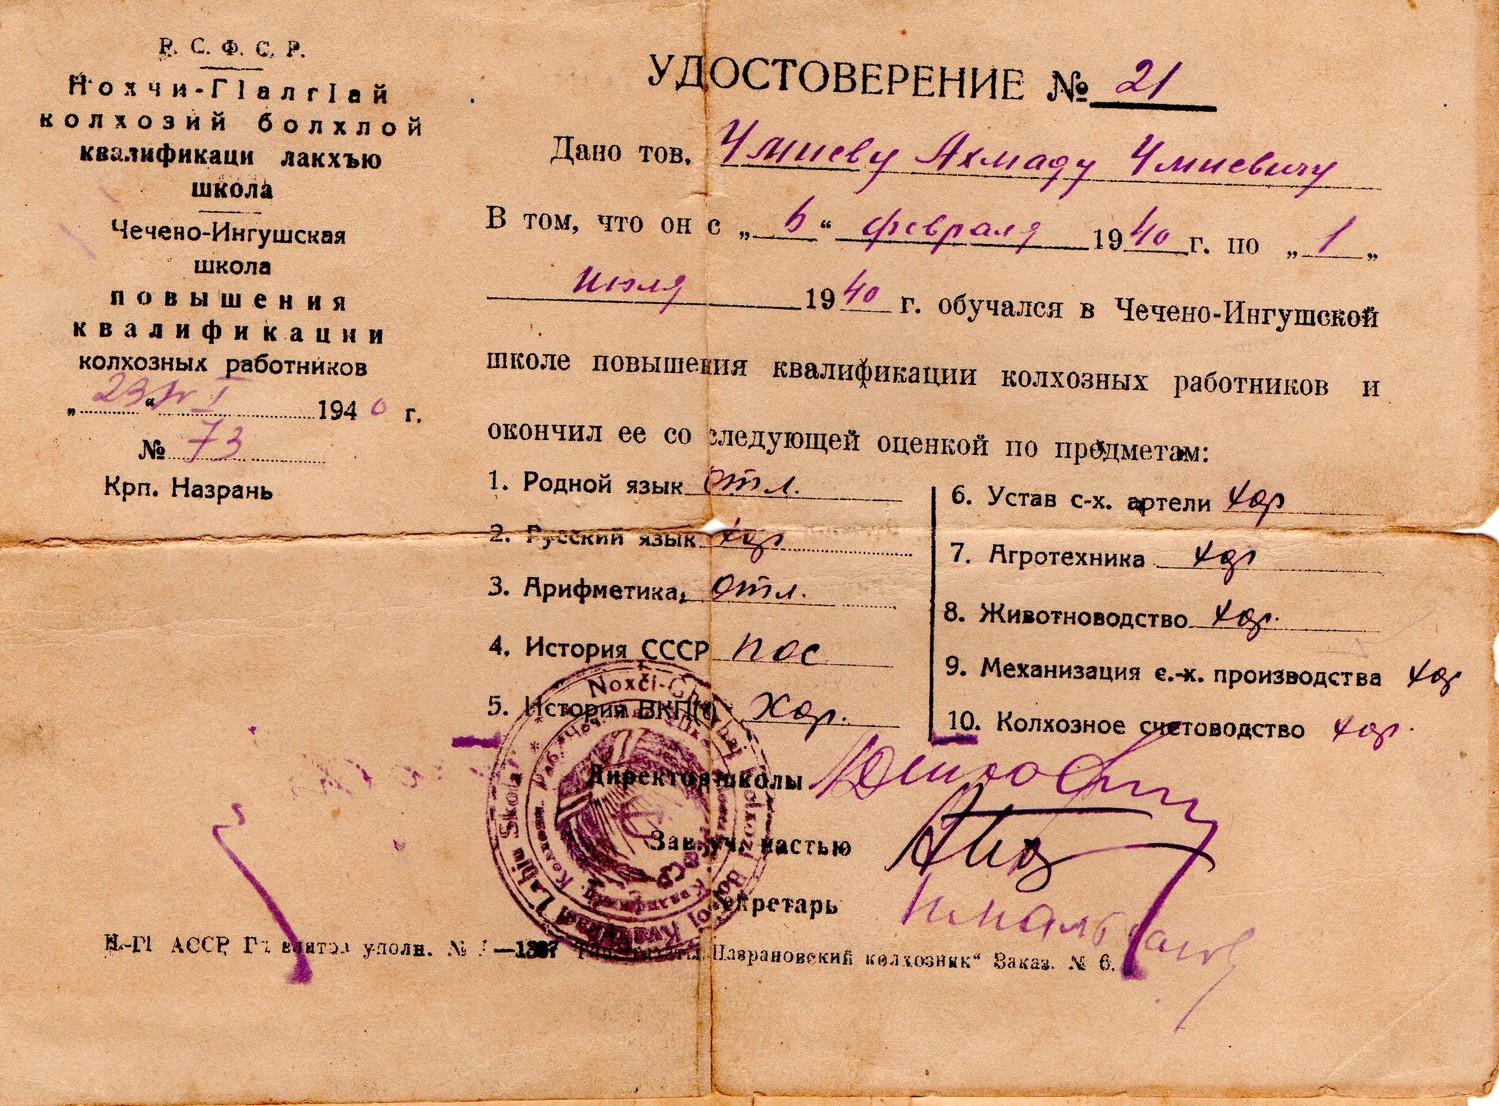 Р. С. Ф. С. Р.
Нохчи-ГIалгIай
колхозий болхлой
квалификаци лакхъю
школа
Чечено-Ингушская
школа
повышения
квалификации
колхозных работников
„23“ VI 1940 г.
№ 73
Крп. Назрань
УДОСТОВЕРЕНИЕ № 21
Дано тов. Умиеву Ахмаду Умиевичу
В том, что он с „6“ февраля 1940 г. по „1„
июля 1940 г. обучался в Чечено-Ингушской
школе повышения квалификации колхозных работников и
окончил ее со следующей оценкой по предметам:
1. Родной язык отл.
2. Русский язык хор
3. Арифметика, отл.
4. История СССР пос
5. История ВКП(б) хор.
6. Устав с-х. артели хор
7. Агротехника хор
8. Животноводство хор.
9. Механизация с.-х. производства хор
10. Колхозное счетоводство хор.
Директор школы
Зав. уч. частью
Секретарь
Н-ГI АССР Главлитал уполн. № „Назрановский колхозник“ Заказ. № 6.